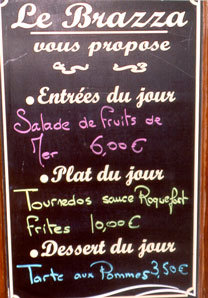 Le Brazza
vous propose
• Entrées du jour
Salade de fruits de
Mer 6,00€
• Plat du jour
Tournedos sauce Roquefort
Frites 10,00€
• Dessert du jour
Tarte aux Pommes 3,50€